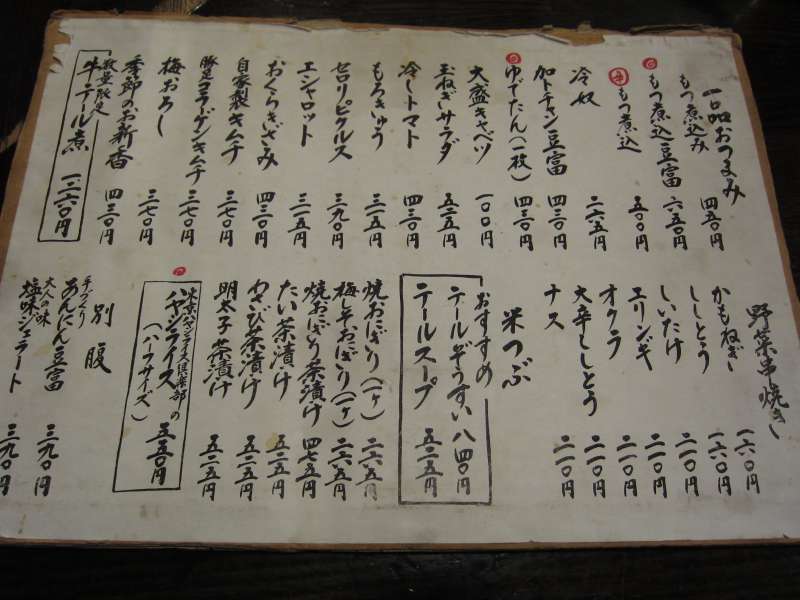 一品おつまみ
もつ煮込み 四五〇円
もつ煮込豆富 六五〇円
もつ煮込 五〇〇円
冷奴 二六五円
加トチャン豆富 四三〇円
ゆでたん(一枚) 四三〇円
大盛きゃべつ 一〇〇円
玉ねぎサラダ 五二五円
冷しトマト 四三〇円
もろきゅう 三一五円
セロリピクルス 三九〇円
エシャロット 三一五円
おくらきざみ 四三〇円
自家製キムチ 三七〇円
豚足コラーゲンキムチ 三七〇円
梅おろし 三七〇円
季節のお新香 四三〇円
数量限定
牛テール煮 一、二六〇円
野菜串焼き
かもねぎ 一六〇円
ししとう 一六〇円
しいたけ 二一〇円
エリンギ 二一〇円
オクラ 二一〇円
大辛ししとう 二一〇円
ナス 二一〇円
米つぶ
おすすめ
テールぞうすい 八四〇円
テールスープ 五二五円
焼おにぎり(一ヶ) 二六五円
梅しそおにぎり(一ヶ) 二六五円
焼おにぎり茶漬け 四七五円
たい茶漬け 五二五円
わさび茶漬け 五二五円
明太子茶漬け 五二五円
東京ハヤシライス倶楽部の
ハヤシライス 五五〇円
(ハーフサイズ)
別腹
手づくり
あんにん豆富 三九〇円
大人の味
塩味ジェラート 三九〇円